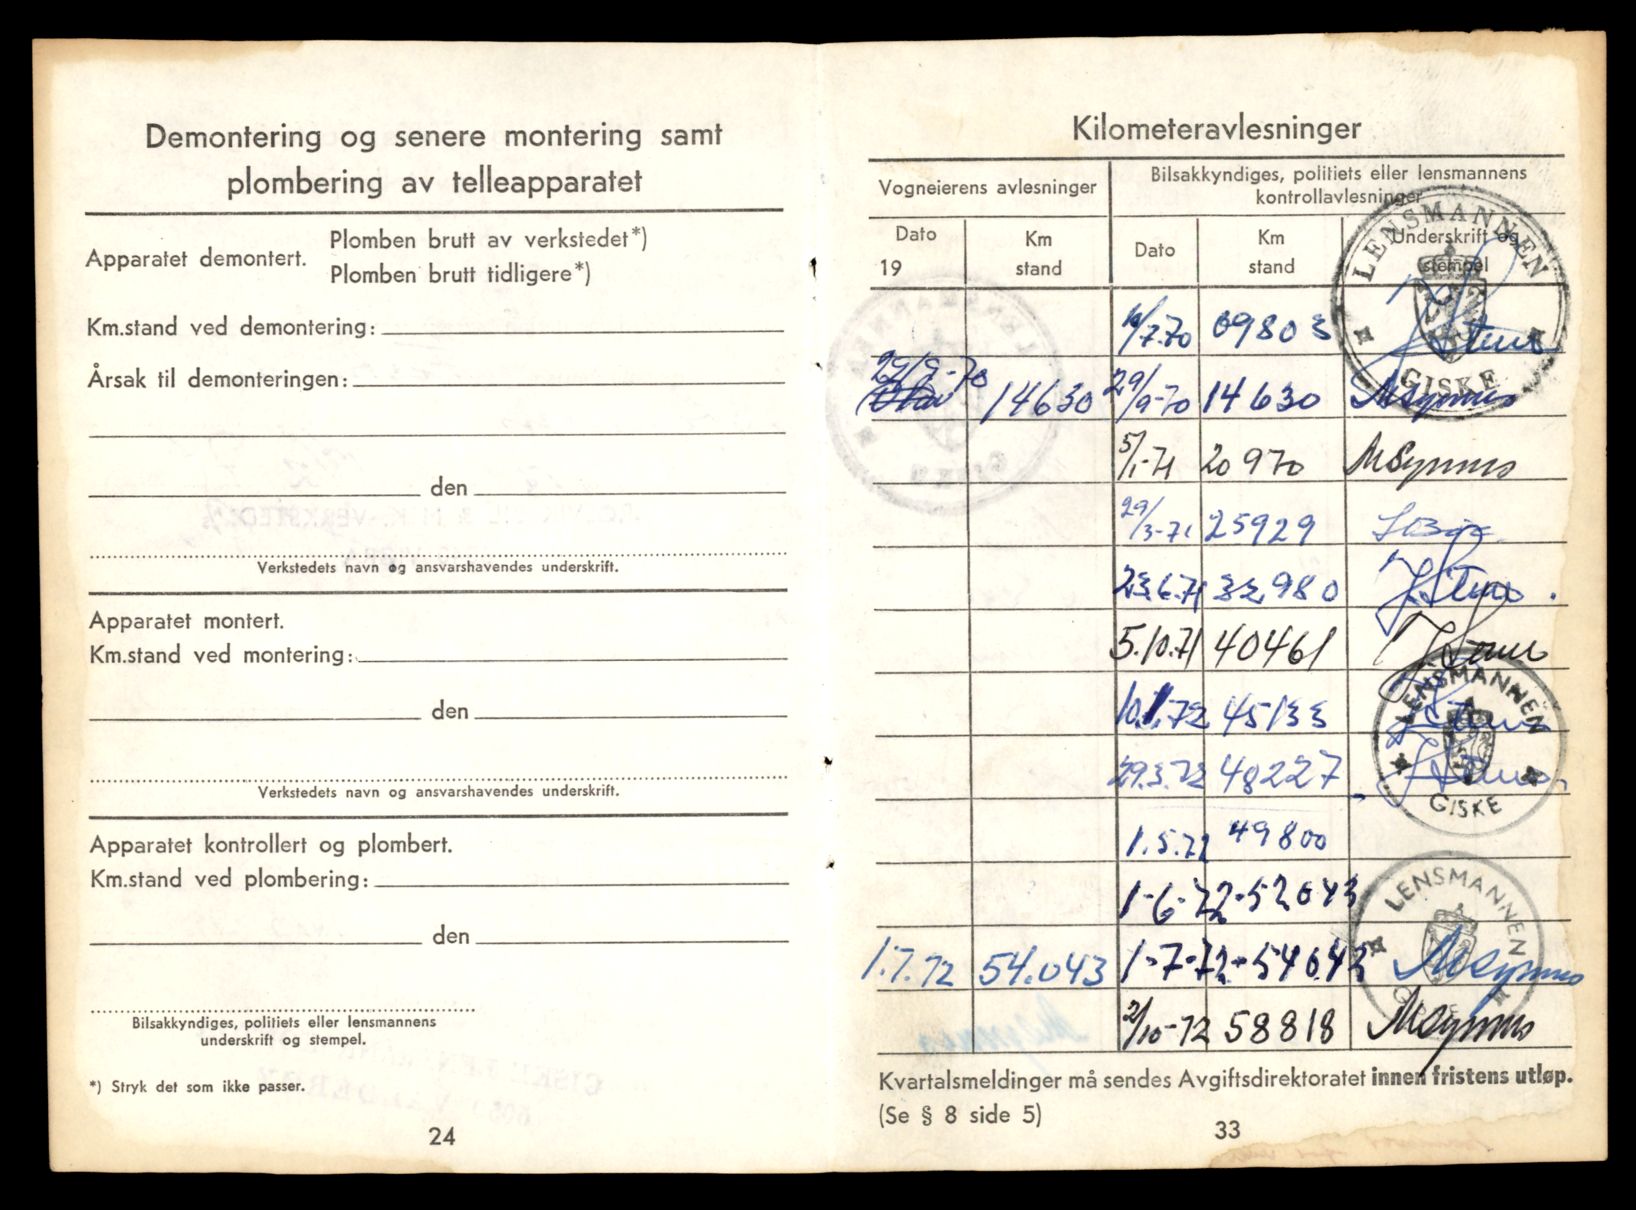 Demontering og senere montering samt
plombering av telleapparatet
Apparatet demontert.
Plomben brutt av verkstedet*)
Plomben brutt tidligere*)
Km.stand ved demontering:
Årsak til demonteringen:
den
Verkstedets navn og ansvarshavendes underskrift.
Apparatet montert.
Km.stand ved montering:
den
Verkstedets navn og ansvarshavendes underskrift.
Apparatet kontrollert og plombert.
Km.stand ved plombering:
den
Bilsakkyndiges, politiets eller lensmannens
underskrift og stempel.
*) Stryk det som ikke passer.
24
Kilometeravlesninger
Vogneierens avlesninger
Bilsakkyndiges, politiets eller lensmannens
kontrollavlesninger
Dato
19
Km
stand
Dato
Km
stand
Underskrift og
stempel
LENSMANNEN
GISKE
/7.70 09803
29/9-70 14630 29/9-70 14630 MSynnes
5/1-71 20970 MSynnes
29/3-71 25929
23.6.71 32980
5.10.71 40461
10.1.72 45133
29.3.72 48227
LENSMANNEN
GISKE
1.5.72 49800
1-6-72-52043
LENSMANNEN
1.7.72 54.043 1-7-72-54043 MSynnes
2/10-72 58818 MSynnes
Kvartalsmeldinger må sendes Avgiftsdirektoratet innen fristens utløp.
(Se § 8 side 5)
33